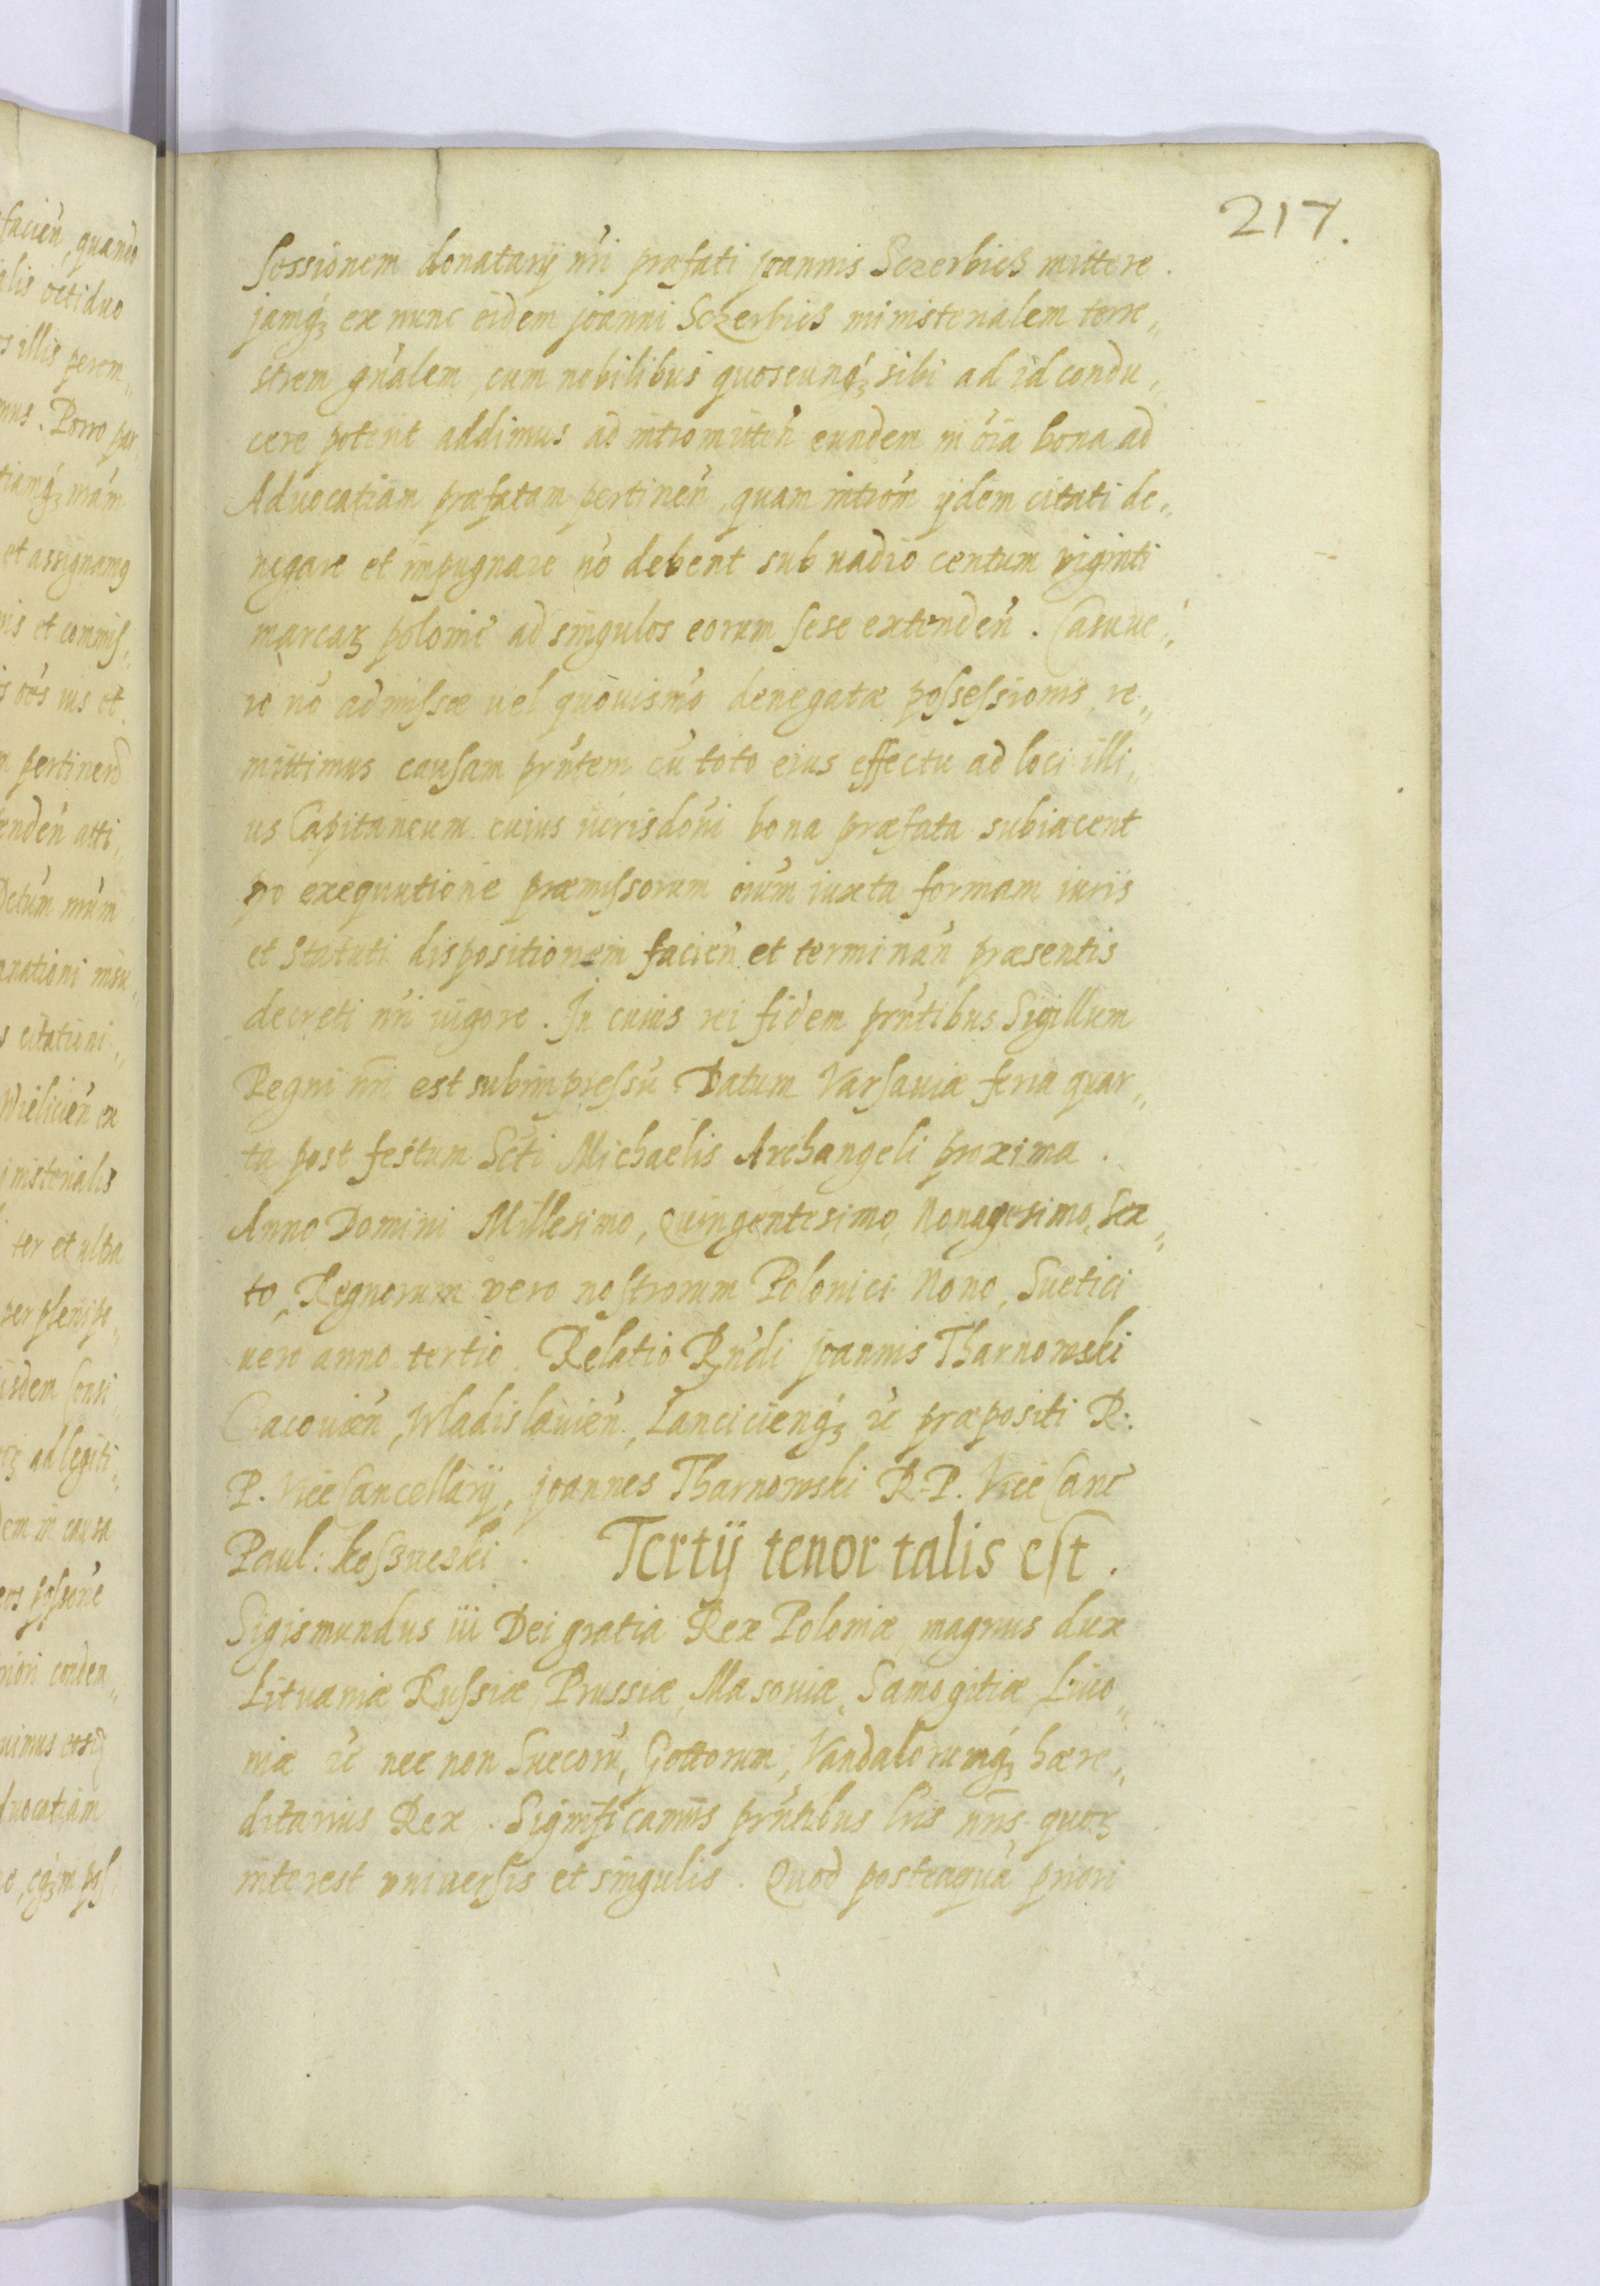 217.
sessionem donatarij nri præfati Joannis Sczerbicz mittere.
jamq́ꝫ ex nunc eidem joanni Sczerbicz ministerialem terre„
strem gn̄alem, cum nobilibus quoscunq́ꝫ sibi ad id condu„
cere poterit addimus ad intromitteñ eundem in oi͂a bona ad
Advocatiam præfatam pertineñ, quam introm̃ ijdem citati de„
negare et impugnare nō debent sub vadio centum viginti
marcaꝝ poloni͂ ad singulos eorum sese extendeñ. Casu ve„
ro nō admissæ vel quovismō denegatæ possessionis re„
mittimus causam prñtem cū toto eius effectu ad loci illi„
us Capitaneum cuius iurisdoñi bona præfata subiacent
pro exequutione præmissorum oium̃ iuxta formam iuris
et Statuti dispositionem facieñ et terminañ præsentis
decreti nri vigore. In cuius rei fidem prñtibus Sigillum
Regni nri est subimpressū. Datum Varsaviæ feria quar„
ta post festum Scti Michaelis Archangeli proxima.
Anno Domini Millesimo, Quingentesimo, Nonagesimo, Sex„
to, Regnorum vero nostrorum Polonici Nono, Suetici
vero anno tertio. Relatio Rñdi Joannis Tharnowski
Cracovieñ, Wladislavieñ, Lancicieñq́ꝫ ꝛc præpositi R:
P. Vicecancellarij, Joannes Tharnowski R.P. Vicecanc̃
Paul: Koszucski. Tertij tenor talis est.
Sigismundus iii Dei gratia Rex Poloniæ magnus dux
Lituaniæ Russiæ, Prussiæ, Masoviæ, Samogitiæ, Livo„
niæ ꝛc nec non Suecorū, Gottorum, Vandalorumq́ꝫ hære„
ditarius Rex. Significamus prñtibus lris nris, quoꝝ
interest universis et singulis. Quod posteaquā priori